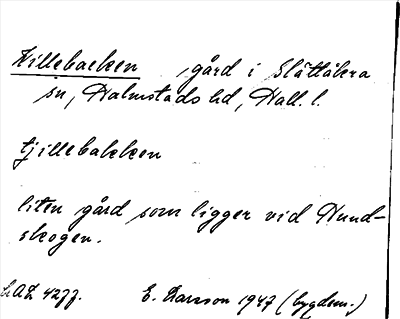 Killebacken gård i Slättåkra
sn, Halmstads hd, Hall. l.
tjillebakken
liten gård som ligger vid Hund-
skogen.
LAL 4277. E. Larsson 1947 (bygdem.)